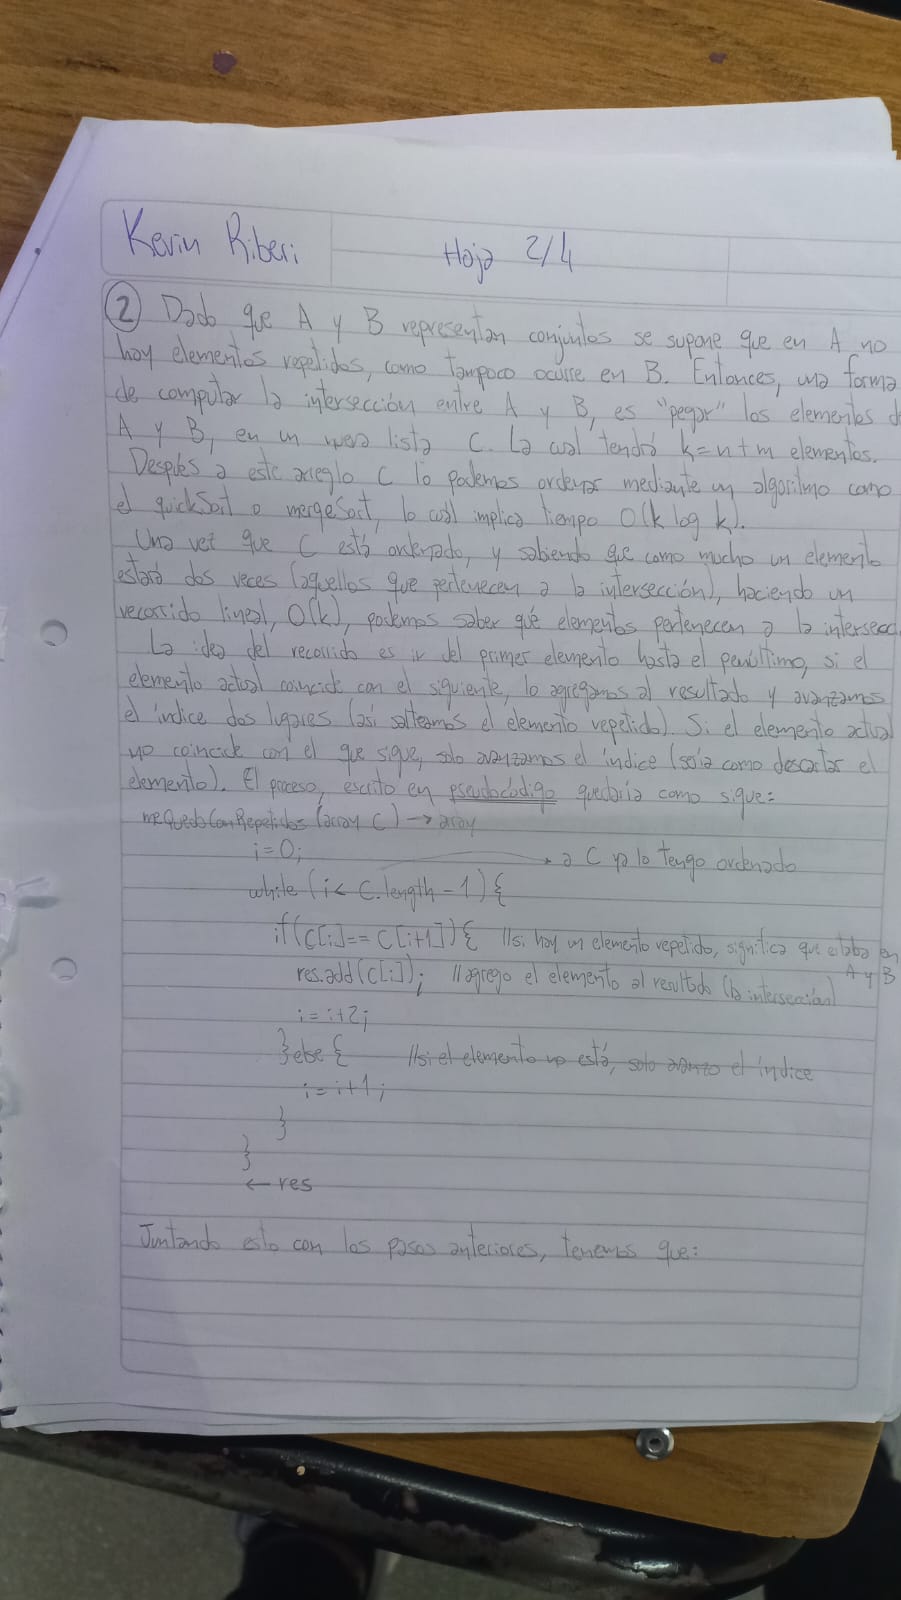 Kevin Riberi
Hoja 2/4
② Dado que A y B representan conjuntos se supone que en A no
hay elementos repetidos, como tampoco ocurre en B. Entonces, una forma
de computar la intersección entre A y B, es "pegar" los elementos de
A y B, en un nueva lista C. La cual tendrá k=n+m elementos.
Después a este arreglo C lo podemos ordenar mediante un algoritmo como
el quickSort o mergeSort, lo cual implica tiempo O(k log k).
Una vez que C está ordenado, y sabiendo que como mucho un elemento
estará dos veces (aquellos que pertenecen a la intersección), haciendo un
recorrido lineal, O(k), podemos saber qué elementos pertenecen a la intersecc
La idea del recorrido es ir del primer elemento hasta el penúltimo, si el
elemento actual coincide con el siguiente, lo agregamos al resultado y avanzamos
el índice dos lugares (así salteamos el elemento repetido). Si el elemento actual
no coincide con el que sigue, solo avanzamos el índice (sería como descartar el
elemento). El proceso, escrito en pseudocódigo quedaría como sigue:
meQuedoConRepetidos (array C) → array
i=0;
→ a C ya lo tengo ordenado
while (i< C.length - 1) {
if (C[i]== C[i+1]) { //si hay un elemento repetido, significa que estaba en A y B
res.add(C[i]); //agrego el elemento al resultado (la intersección)
i = i+2;
} else { //si el elemento no está, solo avanzo el índice
i = i+1;
}
}
← res
Juntando esto con los pasos anteriores, tenemos que: